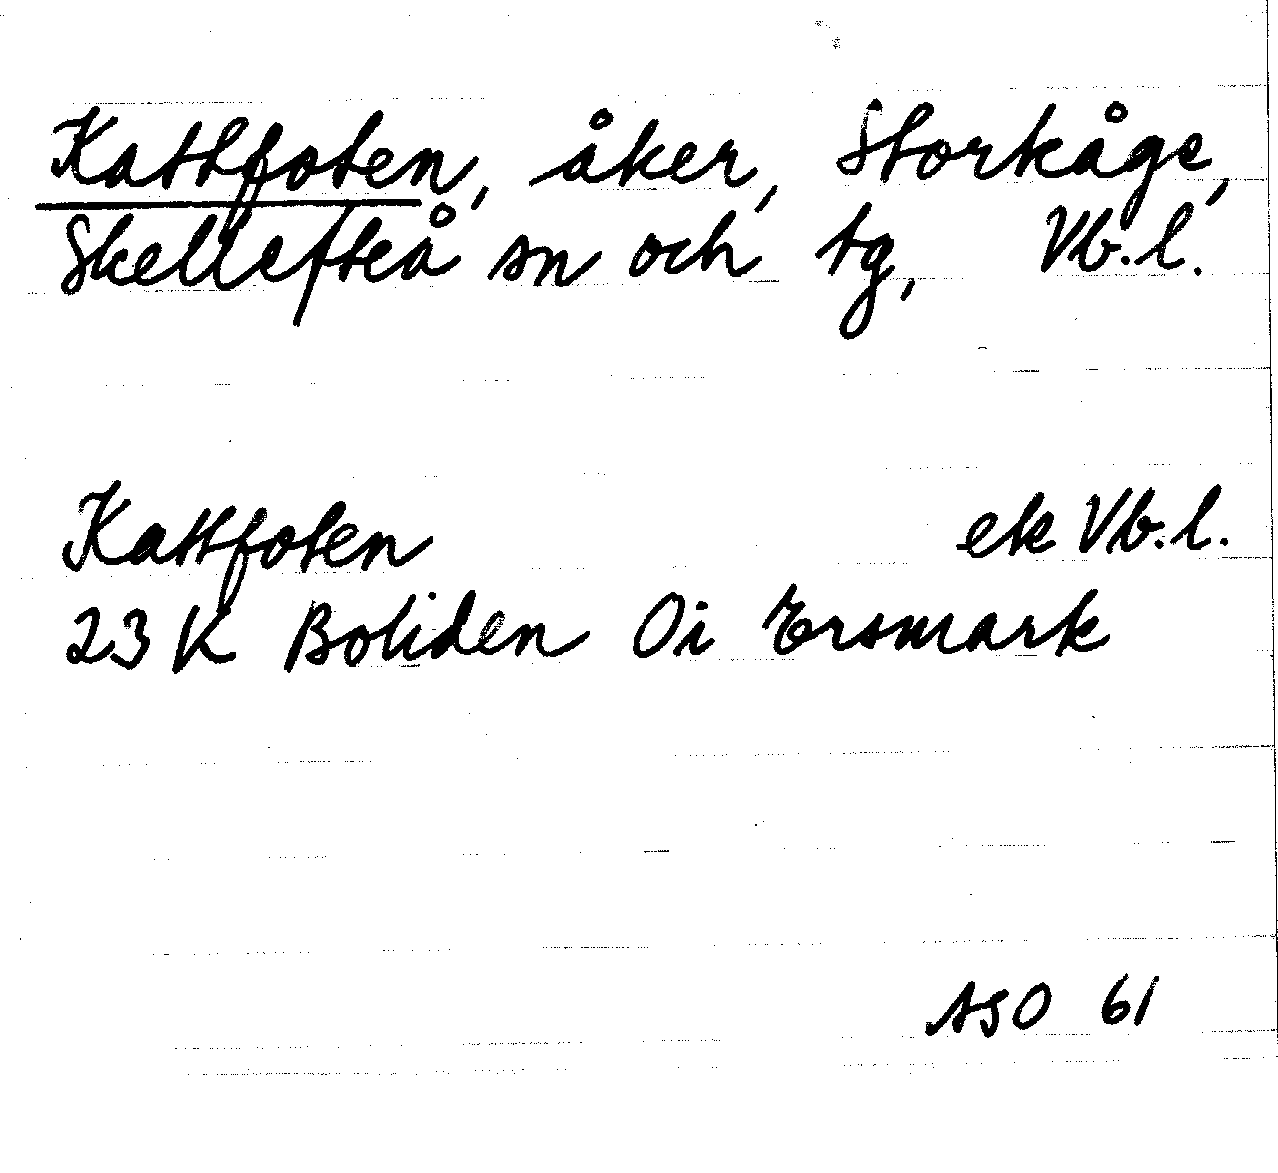 Kattfoten, åker, Storkåge,
Skellefteå sn och tg, Vb.l.
Kattfoten ek Vb.l.
23 K Boliden Oi Ersmark
ASO 61